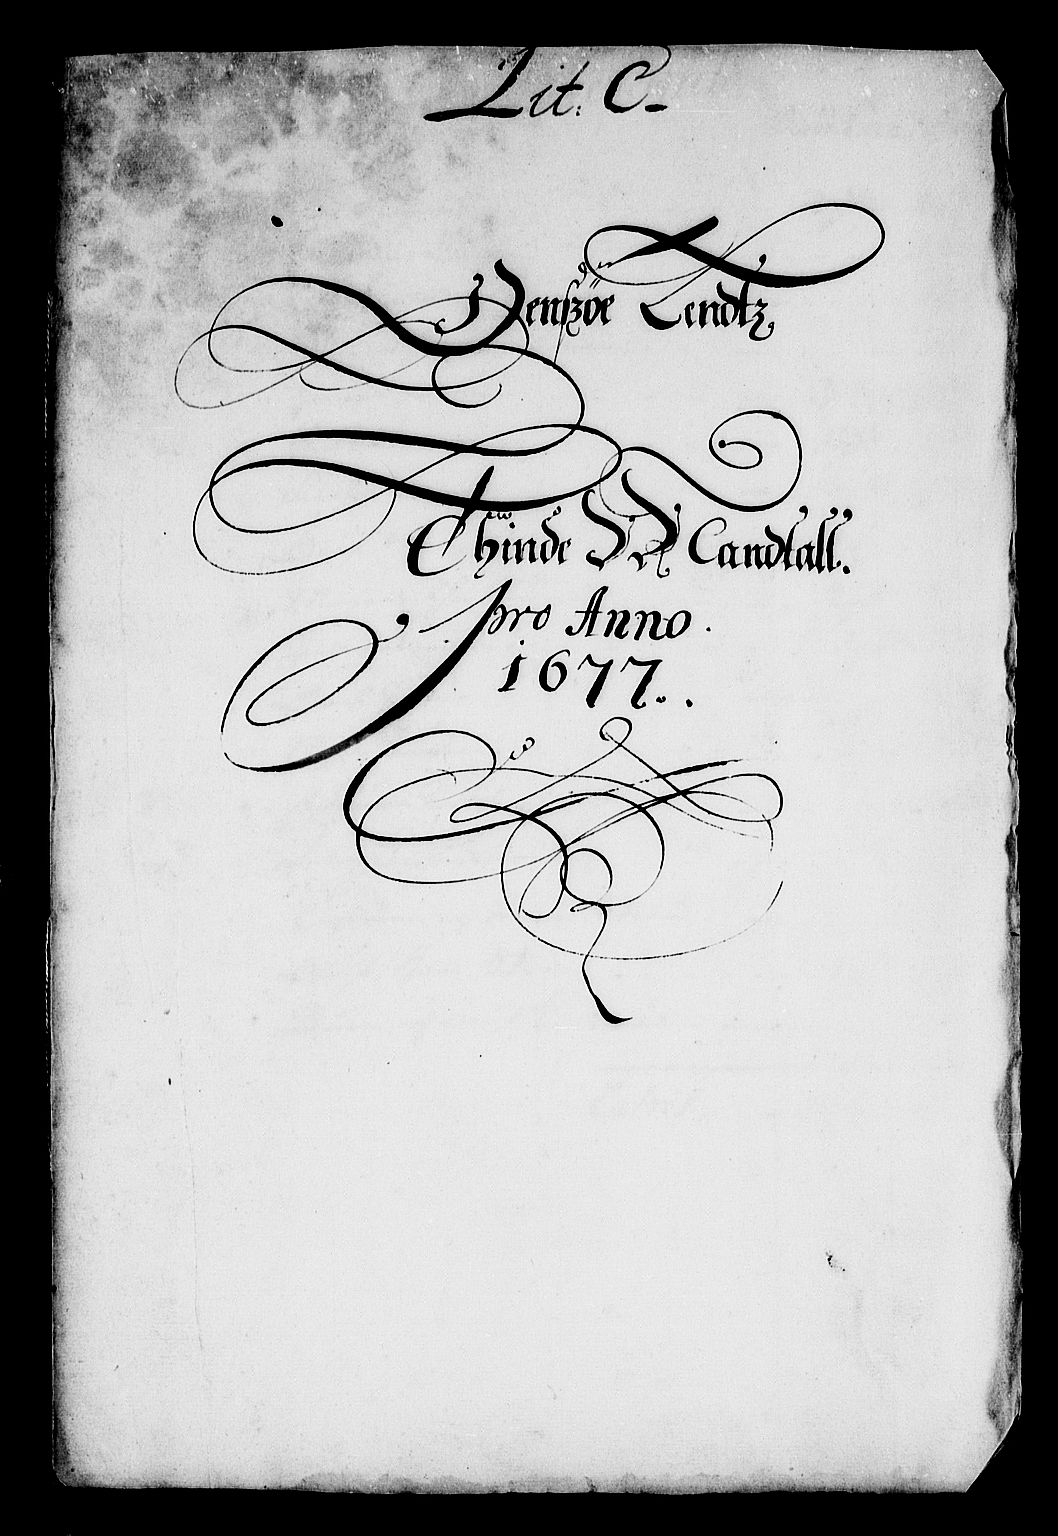 Lit: C-
Jenszöe Lendtz,
Thiinde Mandtall.
pro Anno.
1677..